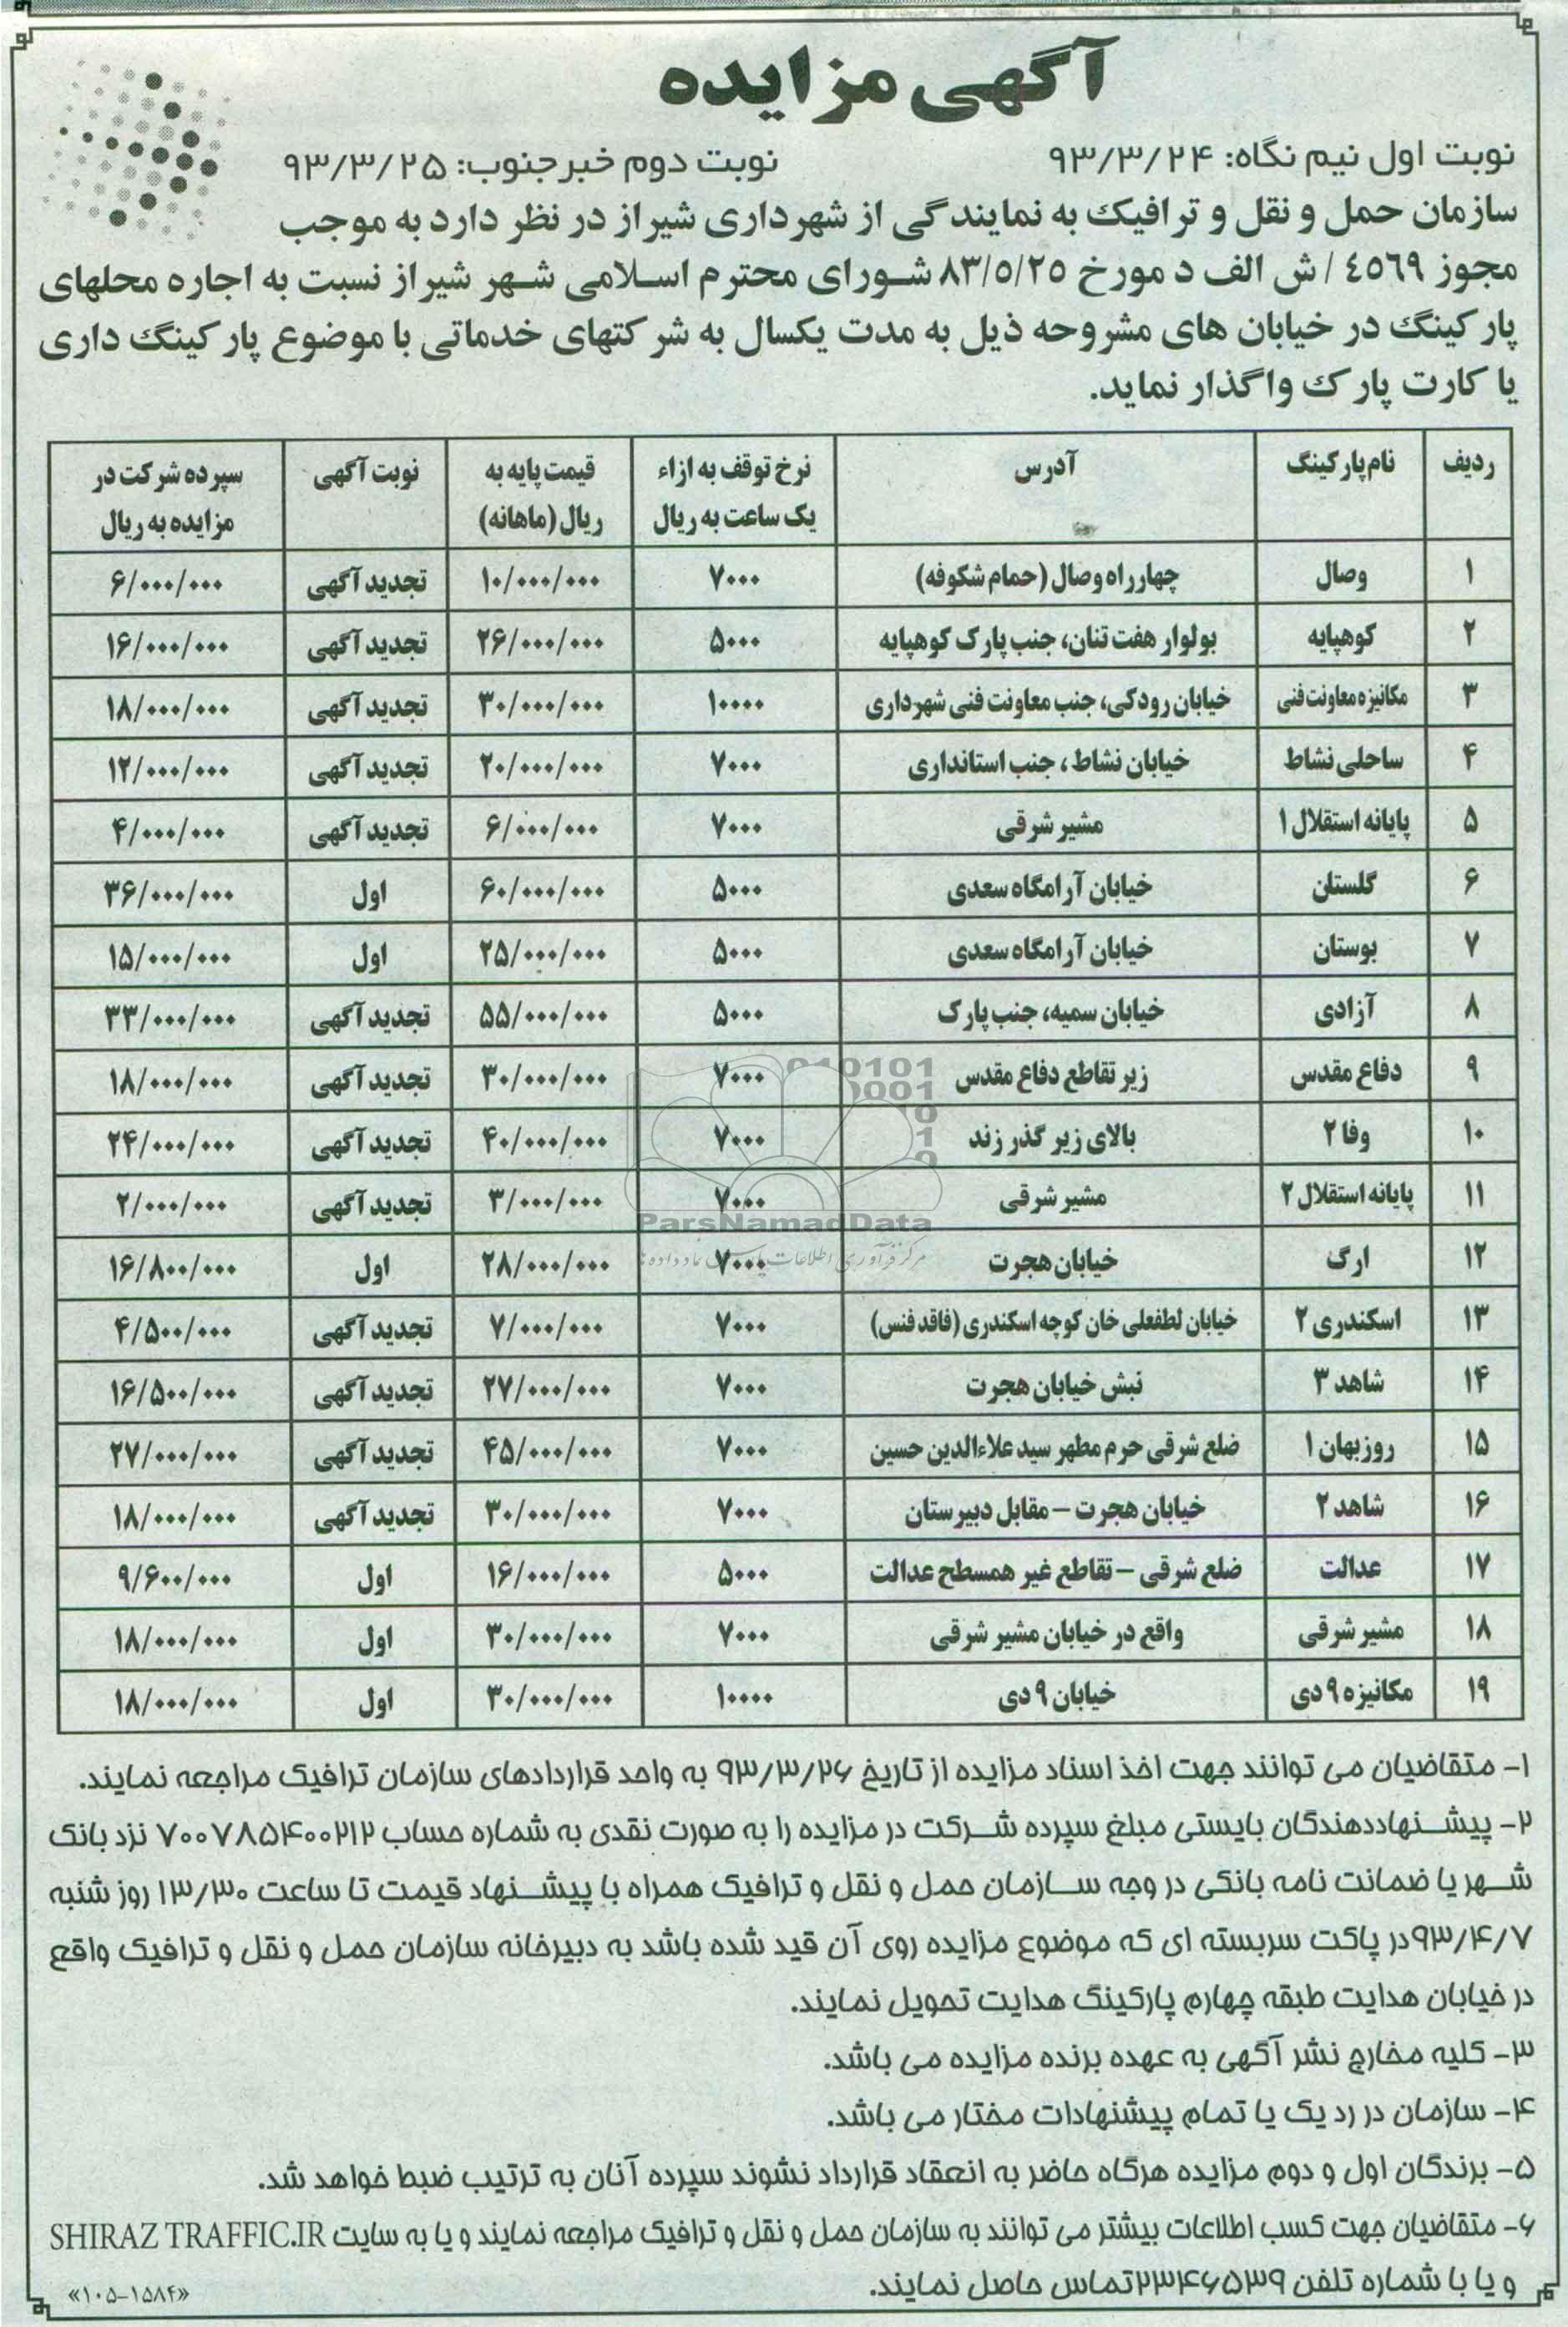 آگهی مزایده
نوبت اول نیم نگاه: ۹۳/۳/۲۴ نوبت دوم خبرجنوب: ۹۳/۳/۲۵
سازمان حمل و نقل و ترافیک به نمایندگی از شهرداری شیراز در نظر دارد به موجب
مجوز ٤٥٦٩ / ش الف د مورخ ٨٣/٥/٢٥ شورای محترم اسلامی شهر شیراز نسبت به اجاره محلهای
پارکینگ در خیابان های مشروحه ذیل به مدت یکسال به شرکتهای خدماتی با موضوع پارکینگ داری
یا کارت پارک واگذار نماید.
ردیف نام پارکینگ آدرس نرخ توقف به ازاء یک ساعت به ریال قیمت پایه به ریال (ماهانه) نوبت آگهی سپرده شرکت در مزایده به ریال
۱ وصال چهارراه وصال (حمام شکوفه) ۷۰۰۰ ۱۰/۰۰۰/۰۰۰ تجدید آگهی ۶/۰۰۰/۰۰۰
۲ کوهپایه بولوار هفت تنان، جنب پارک کوهپایه ۵۰۰۰ ۲۶/۰۰۰/۰۰۰ تجدید آگهی ۱۶/۰۰۰/۰۰۰
۳ مکانیزه معاونت فنی خیابان رودکی، جنب معاونت فنی شهرداری ۱۰۰۰۰ ۳۰/۰۰۰/۰۰۰ تجدید آگهی ۱۸/۰۰۰/۰۰۰
۴ ساحلی نشاط خیابان نشاط ، جنب استانداری ۷۰۰۰ ۲۰/۰۰۰/۰۰۰ تجدید آگهی ۱۲/۰۰۰/۰۰۰
۵ پایانه استقلال ۱ مشیر شرقی ۷۰۰۰ ۶/۰۰۰/۰۰۰ تجدید آگهی ۴/۰۰۰/۰۰۰
۶ گلستان خیابان آرامگاه سعدی ۵۰۰۰ ۶۰/۰۰۰/۰۰۰ اول ۳۶/۰۰۰/۰۰۰
۷ بوستان خیابان آرامگاه سعدی ۵۰۰۰ ۲۵/۰۰۰/۰۰۰ اول ۱۵/۰۰۰/۰۰۰
۸ آزادی خیابان سمیه، جنب پارک ۵۰۰۰ ۵۵/۰۰۰/۰۰۰ تجدید آگهی ۳۳/۰۰۰/۰۰۰
۹ دفاع مقدس زیر تقاطع دفاع مقدس ۷۰۰۰ ۳۰/۰۰۰/۰۰۰ تجدید آگهی ۱۸/۰۰۰/۰۰۰
۱۰ وفا ۲ بالای زیر گذر زند ۷۰۰۰ ۴۰/۰۰۰/۰۰۰ تجدید آگهی ۲۴/۰۰۰/۰۰۰
۱۱ پایانه استقلال ۲ مشیر شرقی ۷۰۰۰ ۳/۰۰۰/۰۰۰ تجدید آگهی ۲/۰۰۰/۰۰۰
ParsNamadData
۱۲ ارگ خیابان هجرت ۷۰۰۰ ۲۸/۰۰۰/۰۰۰ اول ۱۶/۸۰۰/۰۰۰
۱۳ اسکندری ۲ خیابان لطفعلی خان کوچه اسکندری (فاقد فنس) ۷۰۰۰ ۷/۰۰۰/۰۰۰ تجدید آگهی ۴/۵۰۰/۰۰۰
۱۴ شاهد ۳ نبش خیابان هجرت ۷۰۰۰ ۲۷/۰۰۰/۰۰۰ تجدید آگهی ۱۶/۵۰۰/۰۰۰
۱۵ روزبهان ۱ ضلع شرقی حرم مطهر سید علاءالدین حسین ۷۰۰۰ ۴۵/۰۰۰/۰۰۰ تجدید آگهی ۲۷/۰۰۰/۰۰۰
۱۶ شاهد ۲ خیابان هجرت – مقابل دبیرستان ۷۰۰۰ ۳۰/۰۰۰/۰۰۰ تجدید آگهی ۱۸/۰۰۰/۰۰۰
۱۷ عدالت ضلع شرقی – تقاطع غیر همسطح عدالت ۵۰۰۰ ۱۶/۰۰۰/۰۰۰ اول ۹/۶۰۰/۰۰۰
۱۸ مشیر شرقی واقع در خیابان مشیر شرقی ۷۰۰۰ ۳۰/۰۰۰/۰۰۰ اول ۱۸/۰۰۰/۰۰۰
۱۹ مکانیزه ۹ دی خیابان ۹ دی ۱۰۰۰۰ ۳۰/۰۰۰/۰۰۰ اول ۱۸/۰۰۰/۰۰۰
۱- متقاضیان می توانند جهت اخذ اسناد مزایده از تاریخ ۹۳/۳/۲۶ به واحد قراردادهای سازمان ترافیک مراجعه نمایند.
۲- پیشنهاددهندگان بایستی مبلغ سپرده شرکت در مزایده را به صورت نقدی به شماره حساب ۷۰۰۷۸۵۴۰۰۲۱۲ نزد بانک
شهر یا ضمانت نامه بانکی در وجه سازمان حمل و نقل و ترافیک همراه با پیشنهاد قیمت تا ساعت ۱۳/۳۰ روز شنبه
۹۳/۴/۷ در پاکت سربسته ای که موضوع مزایده روی آن قید شده باشد به دبیرخانه سازمان حمل و نقل و ترافیک واقع
در خیابان هدایت طبقه چهارم پارکینگ هدایت تحویل نمایند.
۳- کلیه مخارج نشر آگهی به عهده برنده مزایده می باشد.
۴- سازمان در رد یک یا تمام پیشنهادات مختار می باشد.
۵- برندگان اول و دوم مزایده هرگاه حاضر به انعقاد قرارداد نشوند سپرده آنان به ترتیب ضبط خواهد شد.
۶- متقاضیان جهت کسب اطلاعات بیشتر می توانند به سازمان حمل و نقل و ترافیک مراجعه نمایند و یا به سایت SHIRAZ TRAFFIC.IR
و یا با شماره تلفن ۲۳۴۶۵۳۹ تماس حاصل نمایند.
«۱۰۵-۱۵۸۴»